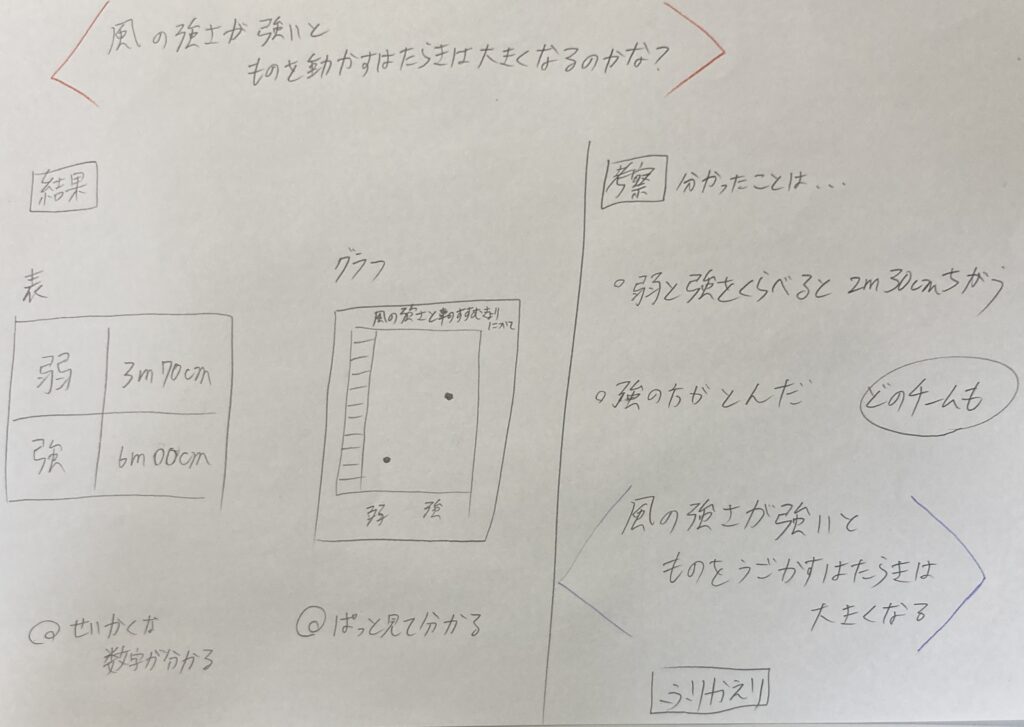 風の強さが強いと
ものを動かすはたらきは大きくなるのかな?
結果
表
弱 3m70cm
強 6m00cm
◎せいかくな
数字が分かる
グラフ
風の強さと車のすすむきょり
について
弱 強
◎ぱっと見て分かる
考察 分かったことは...
○弱と強をくらべると2m30cmちがう
○強の方がとんだ どのチームも
風の強さが強いと
ものをうごかすはたらきは
大きくなる
ふりかえり